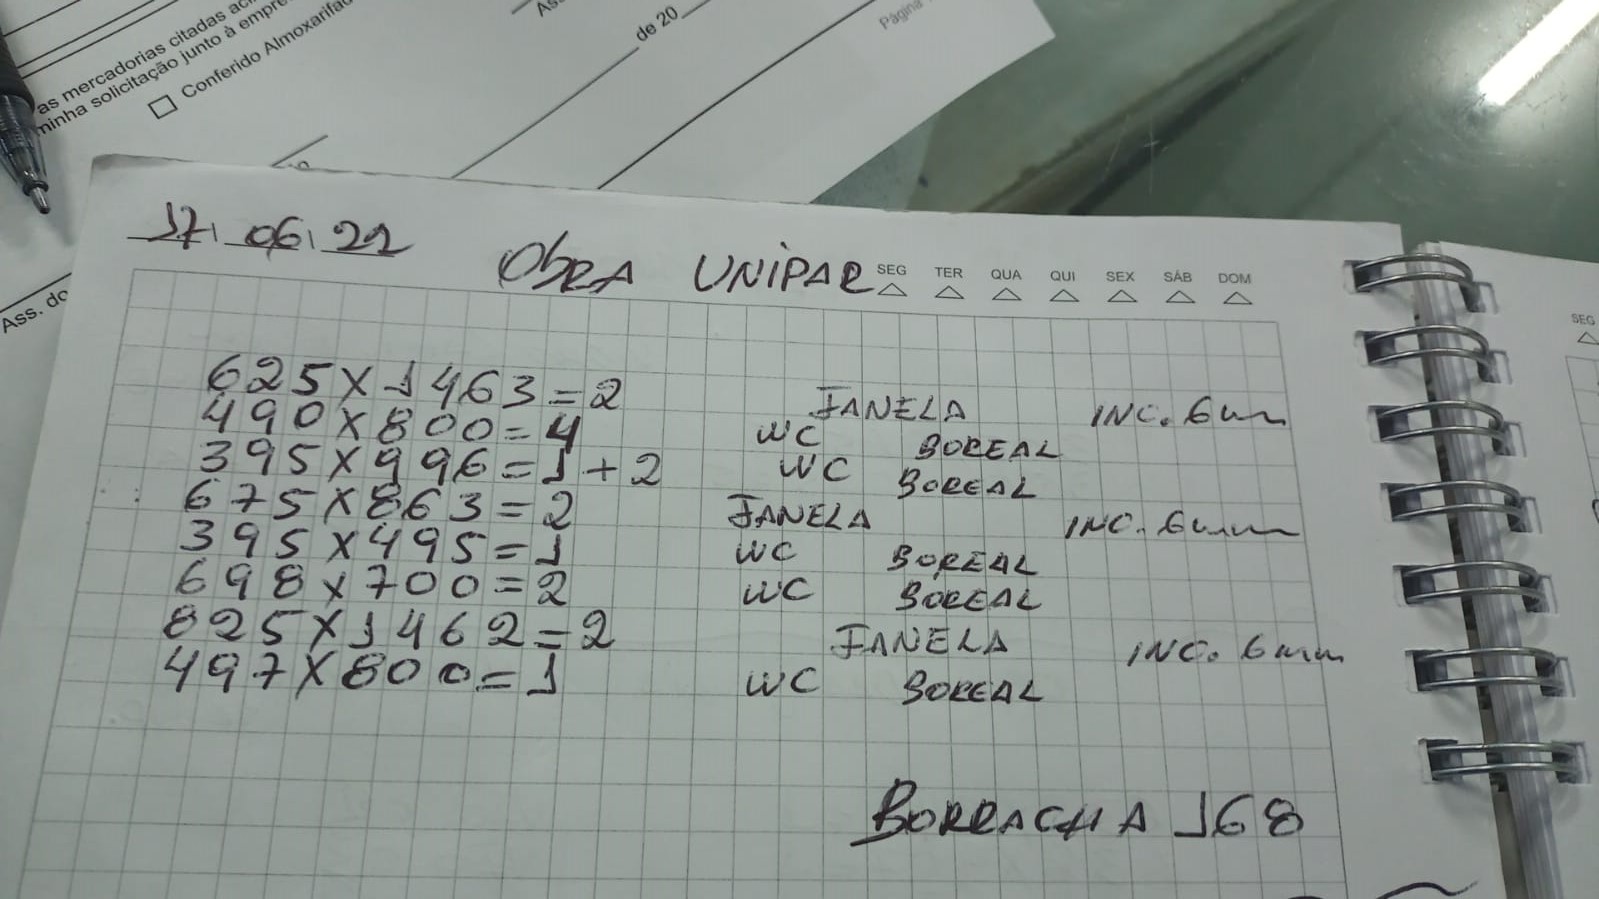 as mercadorias citadas
minha solicitação junto à
Conferido Almoxarifado
de 20
Página
Ass. do
17 06 22
OBRA UNIPAR
SEG TER QUA QUI SEX SÁB DOM
625 X 1463 = 2 JANELA INC. 6mm
490 X 800 = 4 WC BOREAL
395 X 996 = 1 + 2 WC BOREAL
675 X 863 = 2 JANELA INC. 6mm
395 X 495 = 1 WC BOREAL
698 X 700 = 2 WC BOREAL
825 X 1462 = 2 JANELA INC. 6mm
497 X 800 = 1 WC BOREAL
BORRACHA 168
SEG